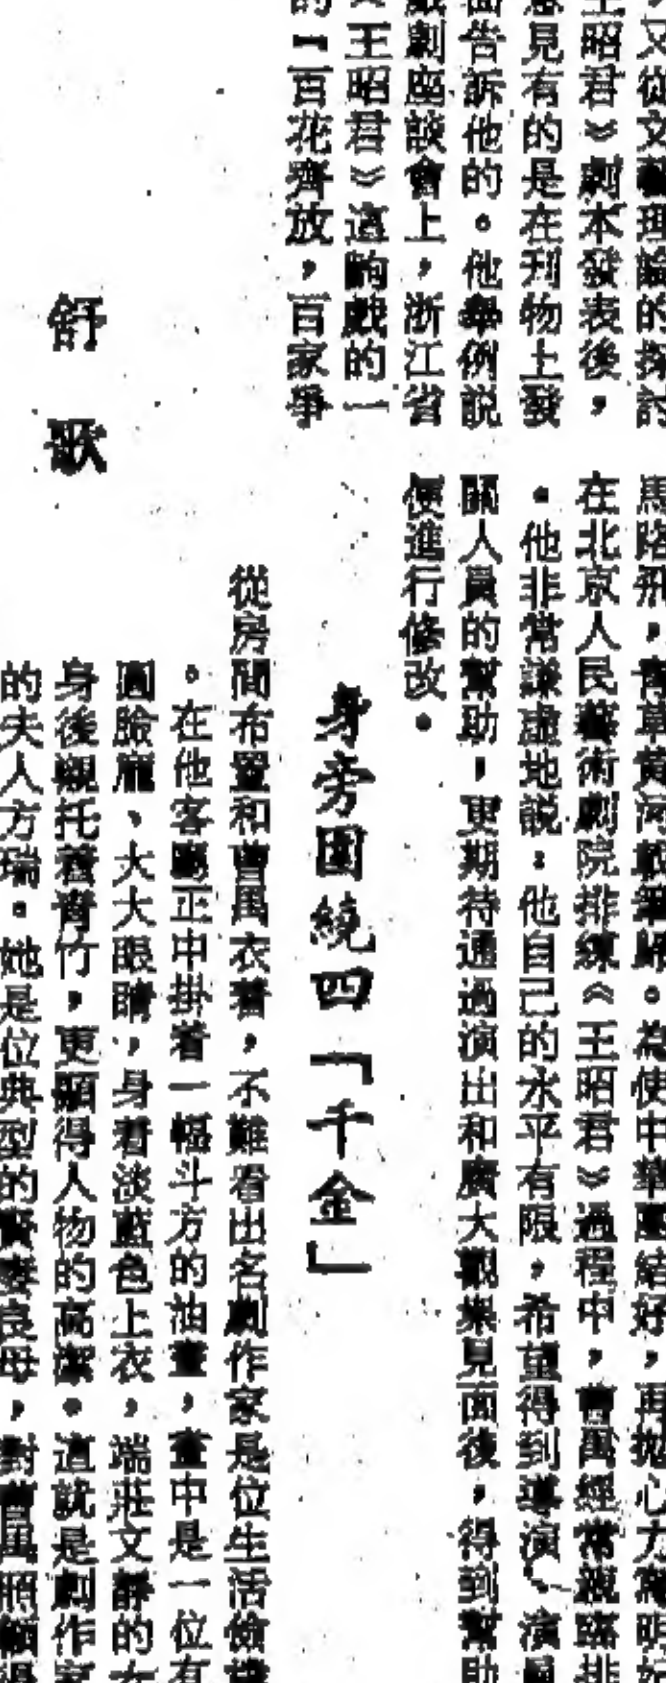 ，又從文藝理論的探討
王昭君》劇本發表後，
意見有的是在刊物上發
面告訴他的。他舉例説
戲劇座談會上，浙江省
《王昭君》這齣戲的一
的『百花齊放，百家爭
舒歌
在北京人民藝術劇院排練《王昭君》過程中，曹禺經常親臨排
。他非常謙虛地説：他自己的水平有限，希望得到導演、演員
關人員的幫助，更期待通過演出和廣大觀眾見面後，得到幫助
便進行修改。
身旁圍繞四「千金」
從房間布置和曹禺衣著，不難看出名劇作家是位生活儉樸
。在他客廳正中掛着一幅斗方的油畫，畫中是一位有
圓臉龐、大大眼睛，身着淡藍色上衣，端莊文靜的女
身後襯托着脩竹，更顯得人物的高潔。這就是劇作家
的夫人方瑞。她是位典型的賢妻良母，對曹禺照顧